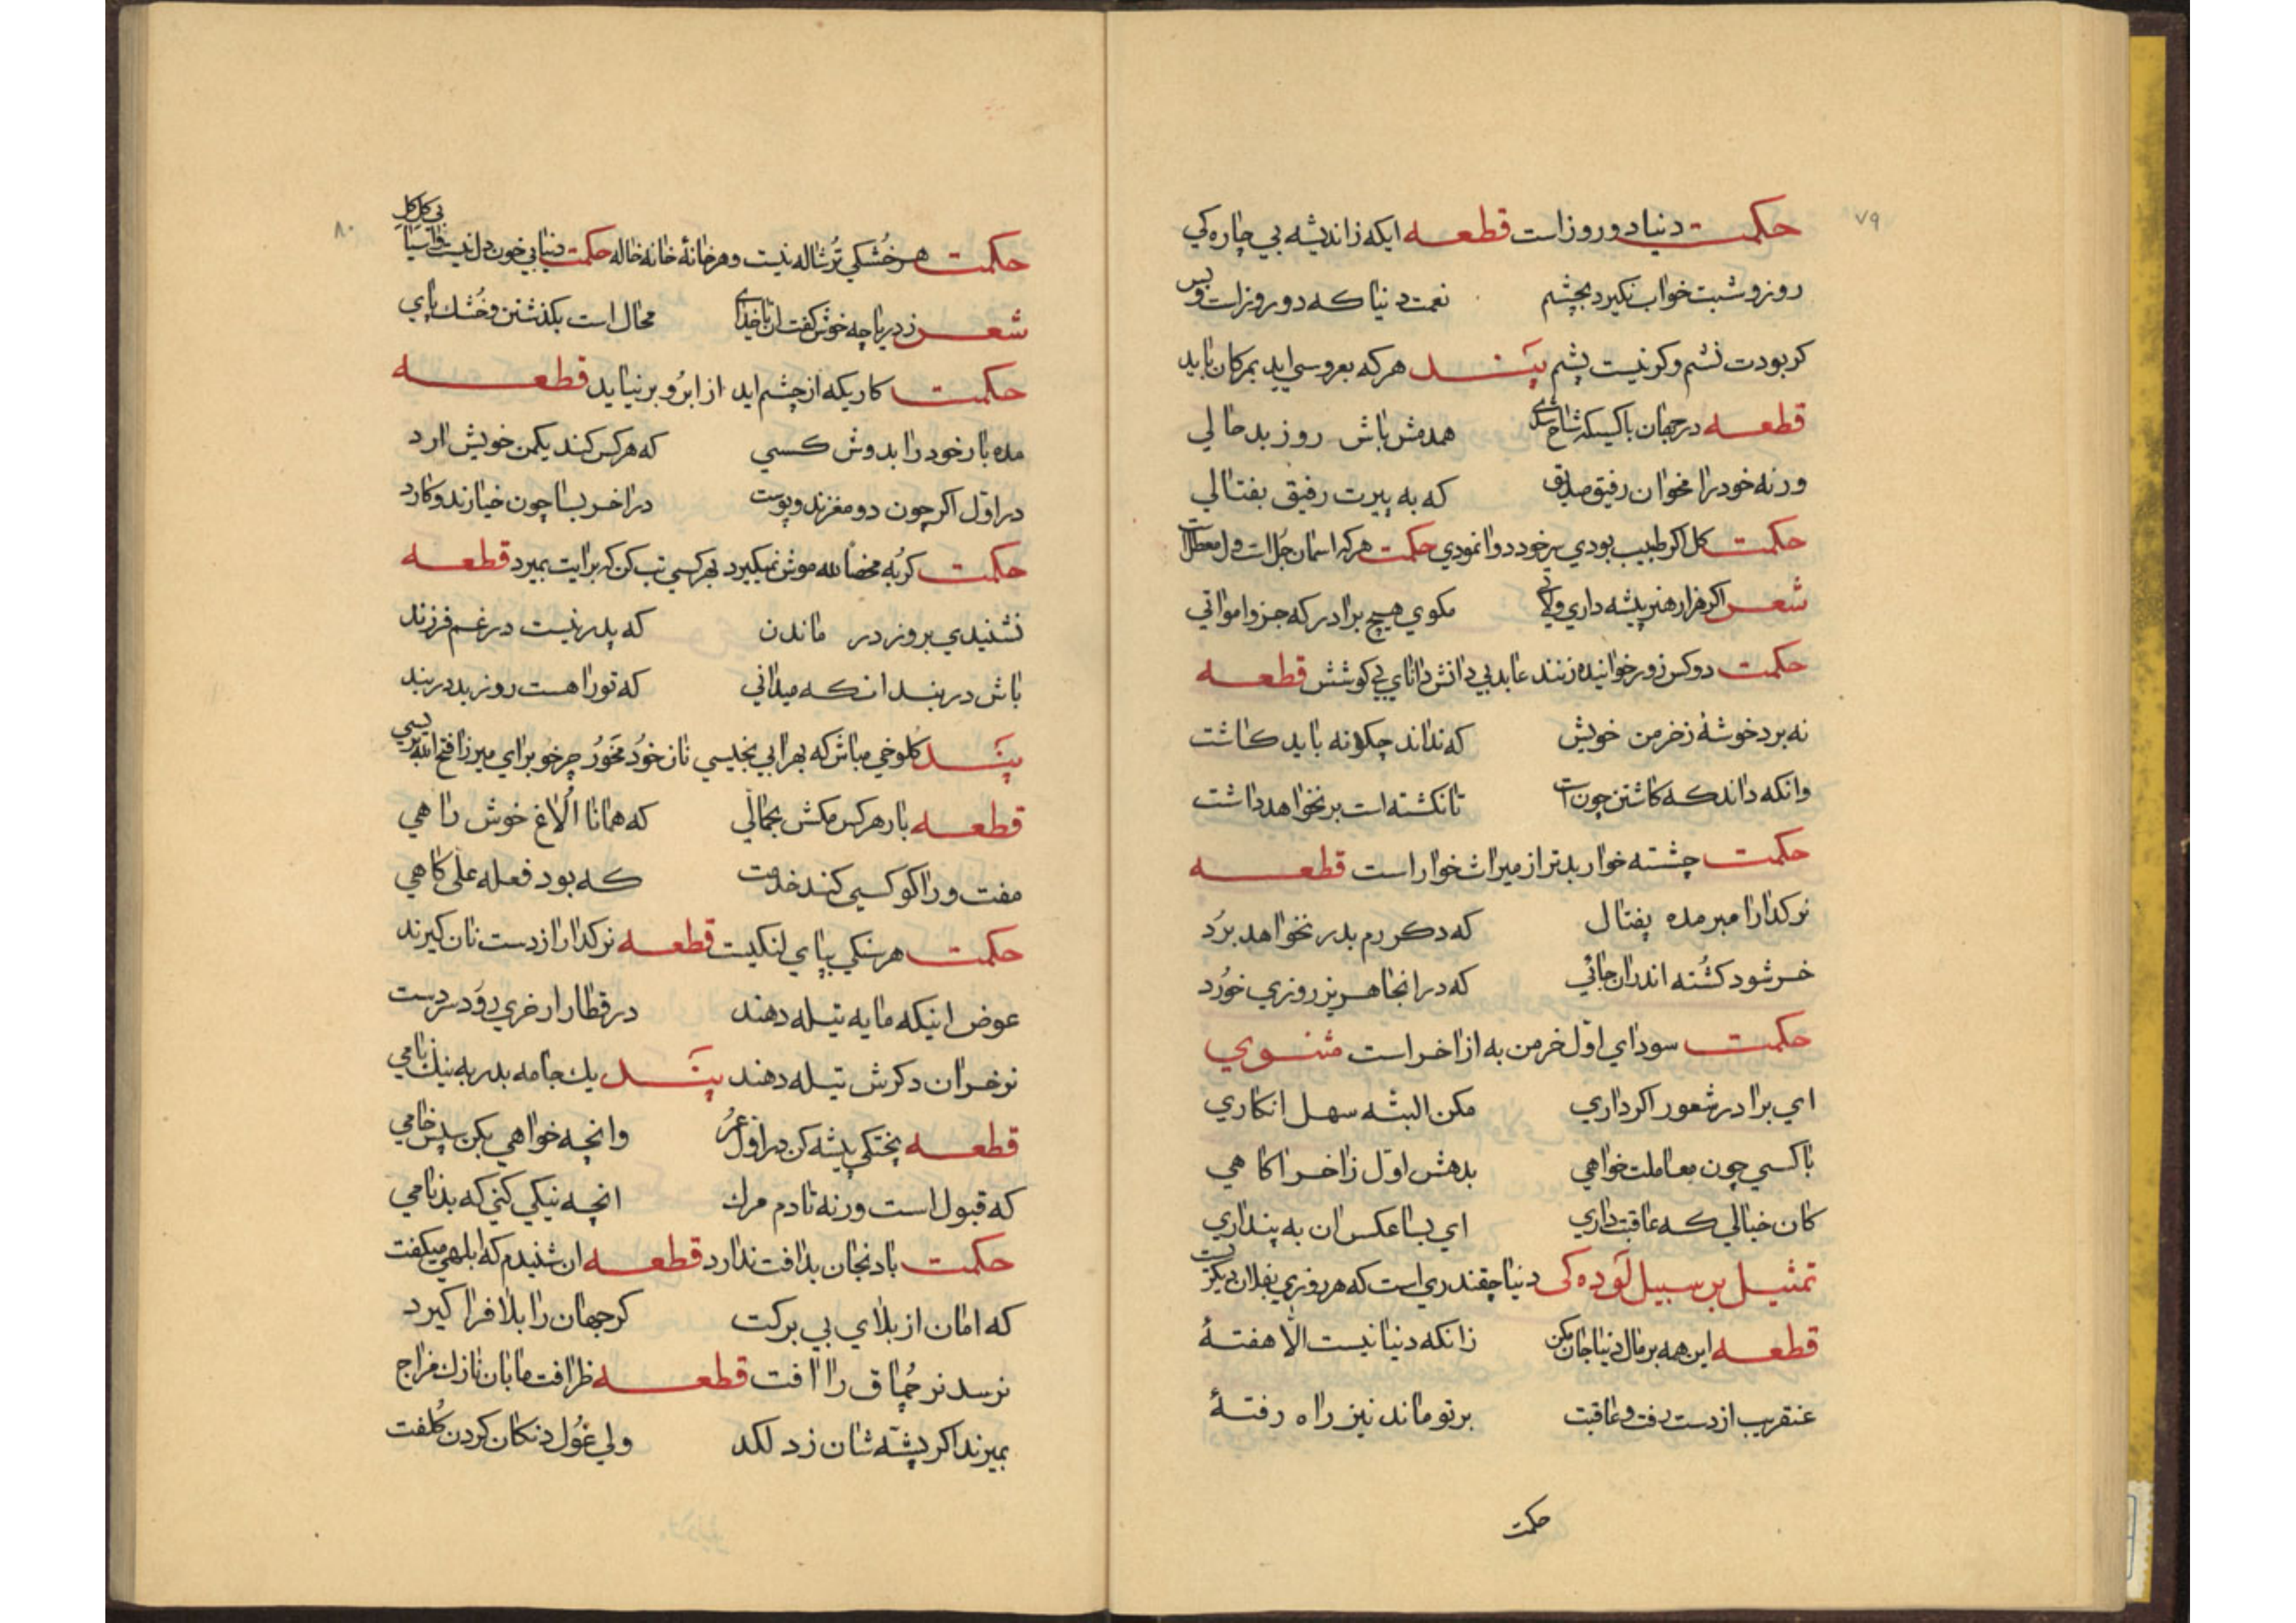 ۷۹
حکمت دنیا دو روز است قطعه ایکه ز اندیشه بی چاره کی
روز و شبت خواب نکیرد بچشم نعمت دنیا که دو روز است و بس
کر بودت نشم و کر نیست پشم پند هر که بعروسی اید بمرکان باید
قطعه در جهان با کسیکه شاخ شدی همدمش باش روز بد حالی
ور نه خود را مخوان رفیق صدیق که به پیرت رفیق بفتالی
حکمت کل اکر طبیب بودی سر خود دوا نمودی حکمت هر که اسمان جل است ول معطل است
شعر اکر هزار هنر پیشه داری و لاتی مکوی هیچ برادر که جزو امواتی
حکمت دو کس زور خوانیده زنند عابد بی دانش دانای بی کوشش قطعه
نه برد خوشهٔ ز خرمن خویش که نداند چکونه باید کاشت
وانکه داند که کاشتن چون است تا نکشته است بر نخواهد داشت
حکمت چشته خوار بدتر از میراث خوار است قطعه
نر کدا را مبر مده پفتال که دکر رم بدر نخواهد برد
خر شود کشته اندران جائی که در انجا هریز روزی خورد
حکمت سودای اول خرمن به از اخر است مثنوی
ای برادر شعور اکر داری مکن البته سهل انکاری
با کسی چون معاملت خواهی بدهش اول ز اخر اکاهی
کان خیالی که عاقبت داری ای بسا عکس ان به پنداری
تمثیل بر سبیل لوده کی دنیا چقندری است که هر روزی بفلان دیکریست
قطعه این همه بر مال دنیا جان مکن زانکه دنیا نیست الا هفتهٔ
عنقریب از دست رفت و عاقبت بر تو ماند نیز راه رفتهٔ
حکمت
۸۰
حکمت هر خشکی ترشاله نیست و هر خانهٔ خانه خاله حکمت دنیا بی خون دل نیست و اسیا بی کل کل
شعر ز دریا چه خوش کفت ان ناخدای محال است بکذشتن و خشک پای
حکمت کاریکه از چشم اید از ابرو بر نیاید قطعه
مده بار خود را بدوش کسی که هر کس کند یکمن خویش ارد
در اول اکر چون دو مغزند و پوست در اخر بسا چون خیارند و کارد
حکمت کربه محضا لله موش نمیکیرد بهر کسی تب کن که برایت بمیرد قطعه
نشنیدی بروز در ماندن که پدر نیست در غم فرزند
باش در بند انکه میدانی که تو را هست روز بد در بند
پند کلوخی مباش که بهر ابی بخیسی نان خود مخور چرخو برای میرزا فتح الله بریسی
قطعه بار هر کس مکش بحمالی که همانا الاغ خوش راهی
مفت ور را کو کسی کند خدمت که بود فعله علی کاهی
حکمت هر سنکی بپای لنکیست قطعه نر کدا را از دست نان کیرند
عوض اینکه مایه تیله دهند در قطار ار خری رود سر دست
نر خران دکرش تیله دهند پند یك جامه بدر به نیك نامی
قطعه پختکی پیشه کن در اول عمر وانچه خواهی بکن سپس خامی
که قبول است ور نه تا دم مرك انچه نیکی کنی که بدنامی
حکمت بادنجان بد افت ندارد قطعه ان شنیدم که ابلهی میکفت
که امان از بلای بی برکت کر جهان را بلا فرا کیرد
نرسد نر چماق را افت قطعه ظرافت مابان نازك مزاج
بمیرند اکر پشه شان زد لکد ولی غول دنکان کردن کلفت